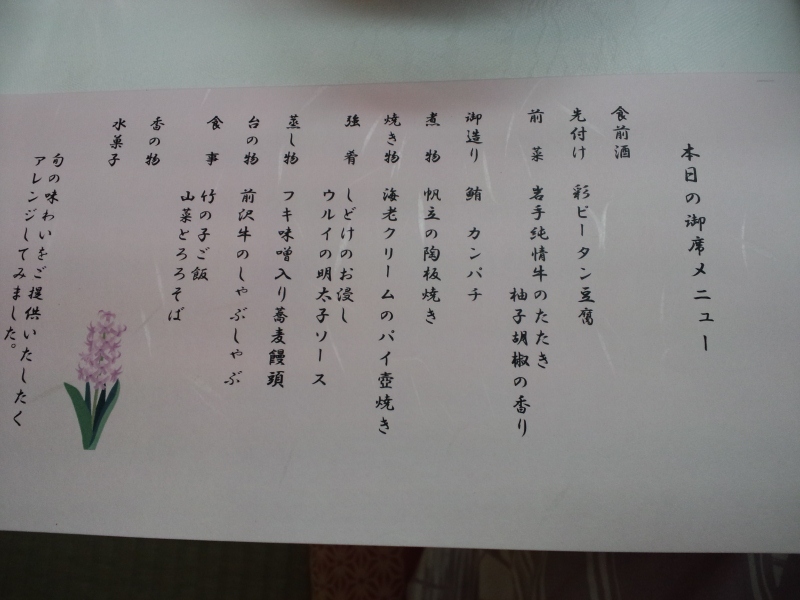 本日の御席メニュー
食前酒
先付け 彩ピータン豆腐
前菜 岩手純情牛のたたき
柚子胡椒の香り
御造り 鮪 カンパチ
煮物 帆立の陶板焼き
焼き物 海老クリームのパイ壺焼き
強肴 しどけのお浸し
ウルイの明太子ソース
蒸し物 フキ味噌入り蕎麦饅頭
台の物 前沢牛のしゃぶしゃぶ
食事 竹の子ご飯
山菜とろろそば
香の物
水菓子
旬の味わいをご提供いたしたく
アレンジしてみました。